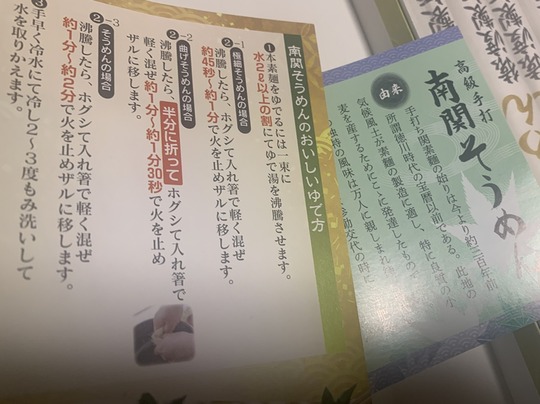 南関そうめんのおいしいゆで方
❶本素麺をゆでるには一束に
水2ℓ以上の割にてゆで湯を沸騰させます。
❷-1 極細そうめんの場合
沸騰したら、ホグシて入れ箸で軽く混ぜ
約45秒〜約1分で火を止めザルに移します。
❷-2 曲げそうめんの場合
沸騰したら、半分に折ってホグシて入れ箸で
軽く混ぜ約1分〜約1分30秒で火を止め
ザルに移します。
❷-3 そうめんの場合
沸騰したら、ホグシて入れ箸で軽く混ぜ
約1分〜約2分で火を止めザルに移します。
❸手早く冷水にて冷し2〜3度もみ洗いして
水を取りかえます。
高級手打
南関そうめん
由来
手打ち南関素麺の始りは今より約三百年前
所謂徳川時代の宝暦以前である。此地の
気候風土が素麺の製造に適し、特に良質の小
麦を産するためにこゝに発達したもので
の独特の風味は万人に親しまれ
参勤交代の時に